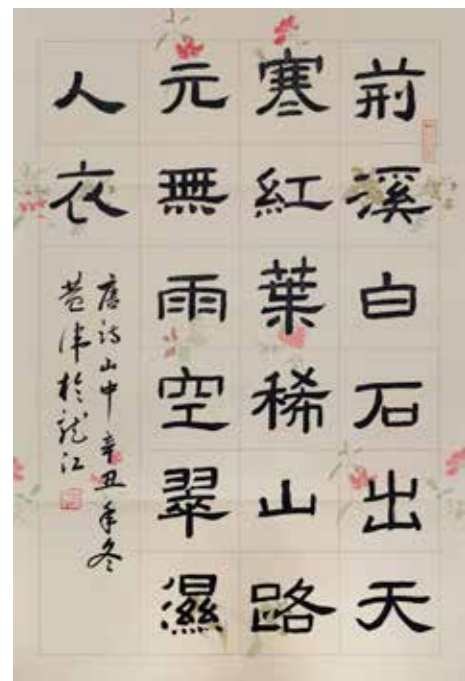 荊溪白石出天
寒紅葉稀山路
元無雨空翠濕
人衣
唐詩山中辛丑年冬
於龍江